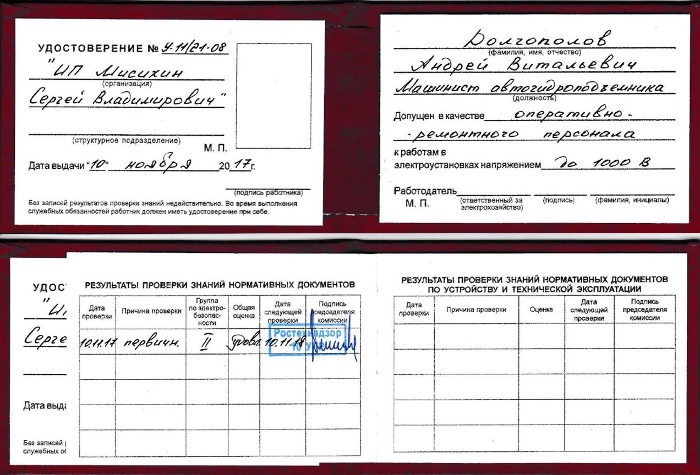 УДОСТОВЕРЕНИЕ № У-11/21-08
"ИП Мисихин
(организация)
Сергей Владимирович"
(структурное подразделение)
М. П.
Дата выдачи "10" ноября 2017г.
(подпись работника)
Без записей результатов проверки знаний недействительно. Во время выполнения
служебных обязанностей работник должен иметь удостоверение при себе.
Долгополов
(фамилия, имя, отчество)
Андрей Витальевич
Машинист автогидроподъемника
(должность)
Допущен в качестве оперативно-
-ремонтного персонала
к работам в
электроустановках напряжением до 1000 В
Работодатель
М. П. (ответственный за электрохозяйство) (подпись) (фамилия, инициалы)
УДОС
"И
Серге
Дата выда
Без записей
служебных об
РЕЗУЛЬТАТЫ ПРОВЕРКИ ЗНАНИЙ НОРМАТИВНЫХ ДОКУМЕНТОВ
Дата проверки Причина проверки Группа по электро-безопас-ности Общая оценка Дата следующей проверки Подпись председателя комиссии
10.11.17 первичн. II удовл. 10.11.18
Ростехнадзор
РЕЗУЛЬТАТЫ ПРОВЕРКИ ЗНАНИЙ НОРМАТИВНЫХ ДОКУМЕНТОВ
ПО УСТРОЙСТВУ И ТЕХНИЧЕСКОЙ ЭКСПЛУАТАЦИИ
Дата проверки Причина проверки Оценка Дата следующей проверки Подпись председателя комиссии